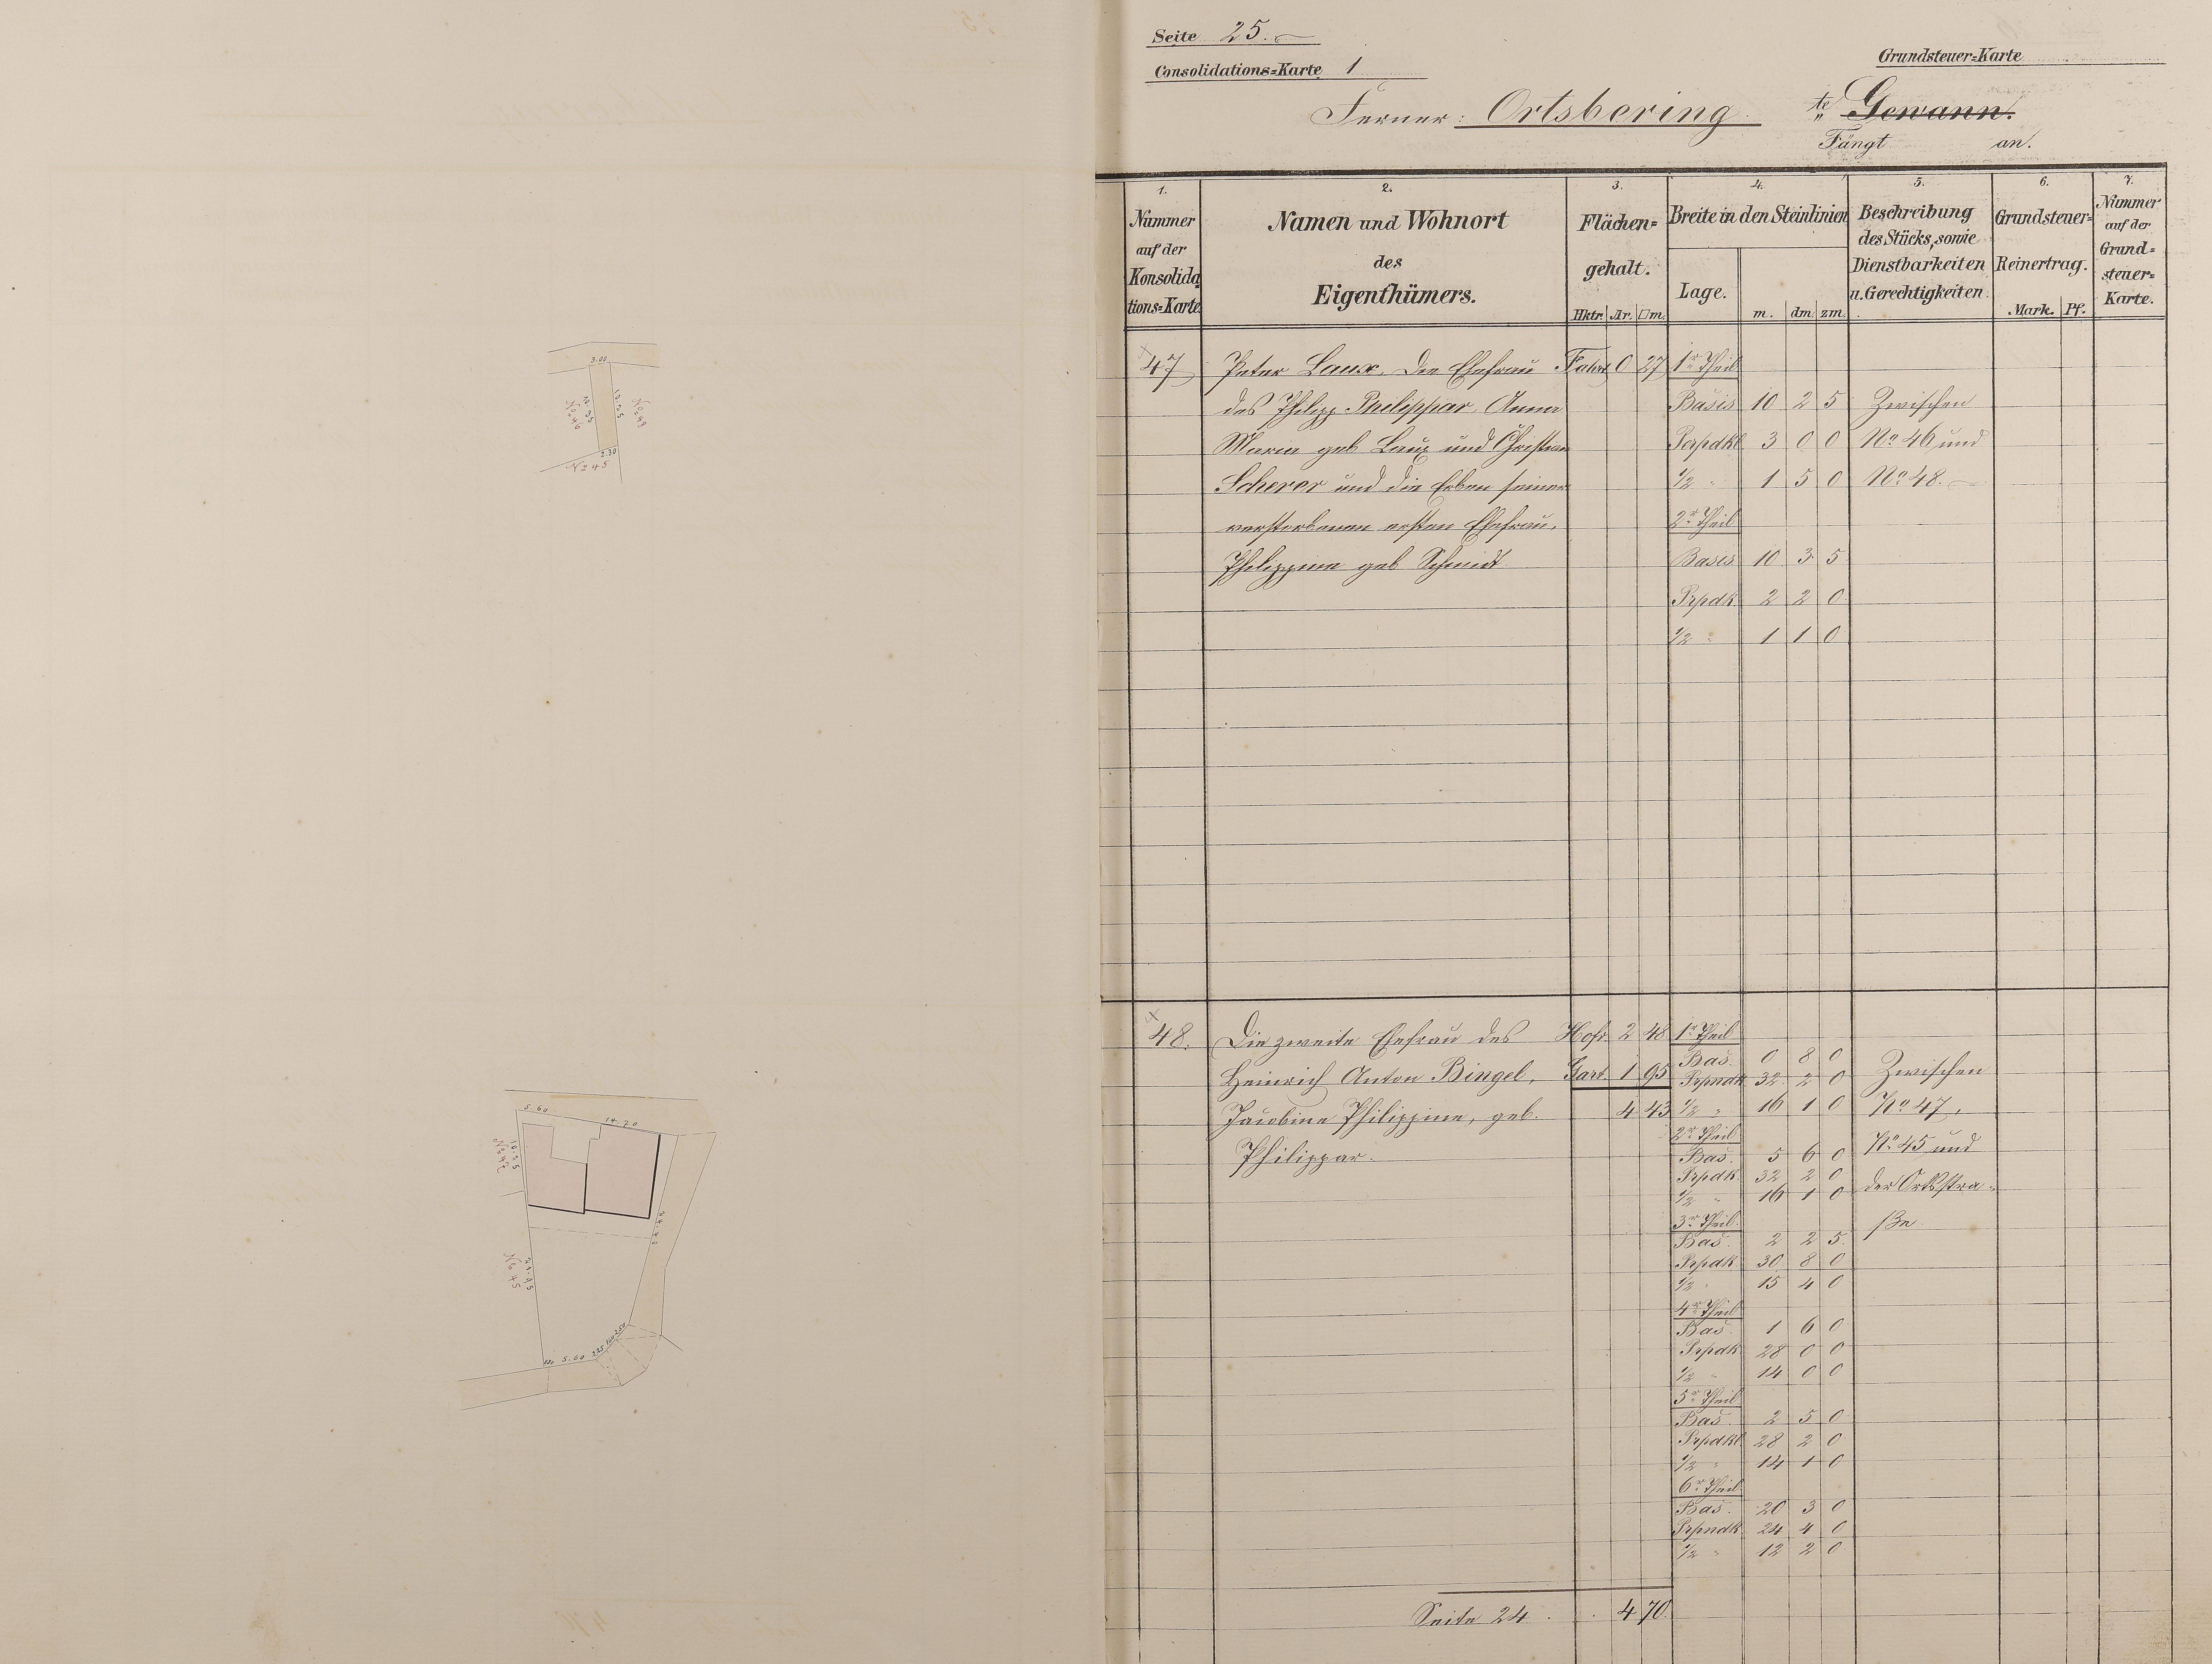 Seite 25.
Consolidations-Karte 1
Grundsteuer-Karte
Ferner: Ortsbering te Gewann.
Fängt an.
1. 2. 3. 4. 5. 6. 7.
Nummer auf der Konsolidations-Karte
Namen und Wohnort des Eigenthümers.
Flächen-gehalt.
Hktr. Ar. □m.
Breite in den Steinlinien
Lage. m. dm zm
Beschreibung des Stücks, sowie Dienstbarkeiten u. Gerechtigkeiten.
Grundsteuer-Reinertrag.
Mark. Pf.
Nummer auf der Grund-steuer-Karte.
47 Peter Laux, Die Ehefrau Fahrt 0 27 1r Theil
des Philipp Philippar, Anna Basis 10 2 5 Zwischen
Maria geb. Laux und Christian Perpdkl 3 0 0 No 46 und
Scherer und die Erben seiner 1/2 " 1 5 0 No 48.
verstorbenen ersten Ehefrau, 2r Theil
Philippine geb Schmidt Basis 10 3 5
Prpdk 2 2 0
1/2 " 1 1 0
48. Die zweite Ehefrau des Hofr. 2 48 1r Theil
Heinrich Anton Bingel, Gart. 1 95 Bas. 0 8 0 Zwischen
Prpndk 32 2 0
Jacobine Philippine, geb. 4 43 1/2 " 16 1 0 No 47,
2r Theil
Philippar. Bas. 5 6 0 No 45 und
Prpdk 32 2 0
1/2 " 16 1 0 der Ortsstra-
3r Theil ße
Bas. 2 2 5
Prpdk 30 8 0
1/2 " 15 4 0
4r Theil
Bas. 1 6 0
Prpdk 28 0 0
1/2 " 14 0 0
5r Theil
Bas. 2 5 0
Prpdkl 28 2 0
1/2 " 14 1 0
6r Theil
Bas. 20 3 0
Prpndk 24 4 0
1/2 " 12 2 0
Seite 24 4 70
3.00
No 46
10.35
10.25
2.30
No 45
5.60
14.70
10.25
No 47
No 45
5.60